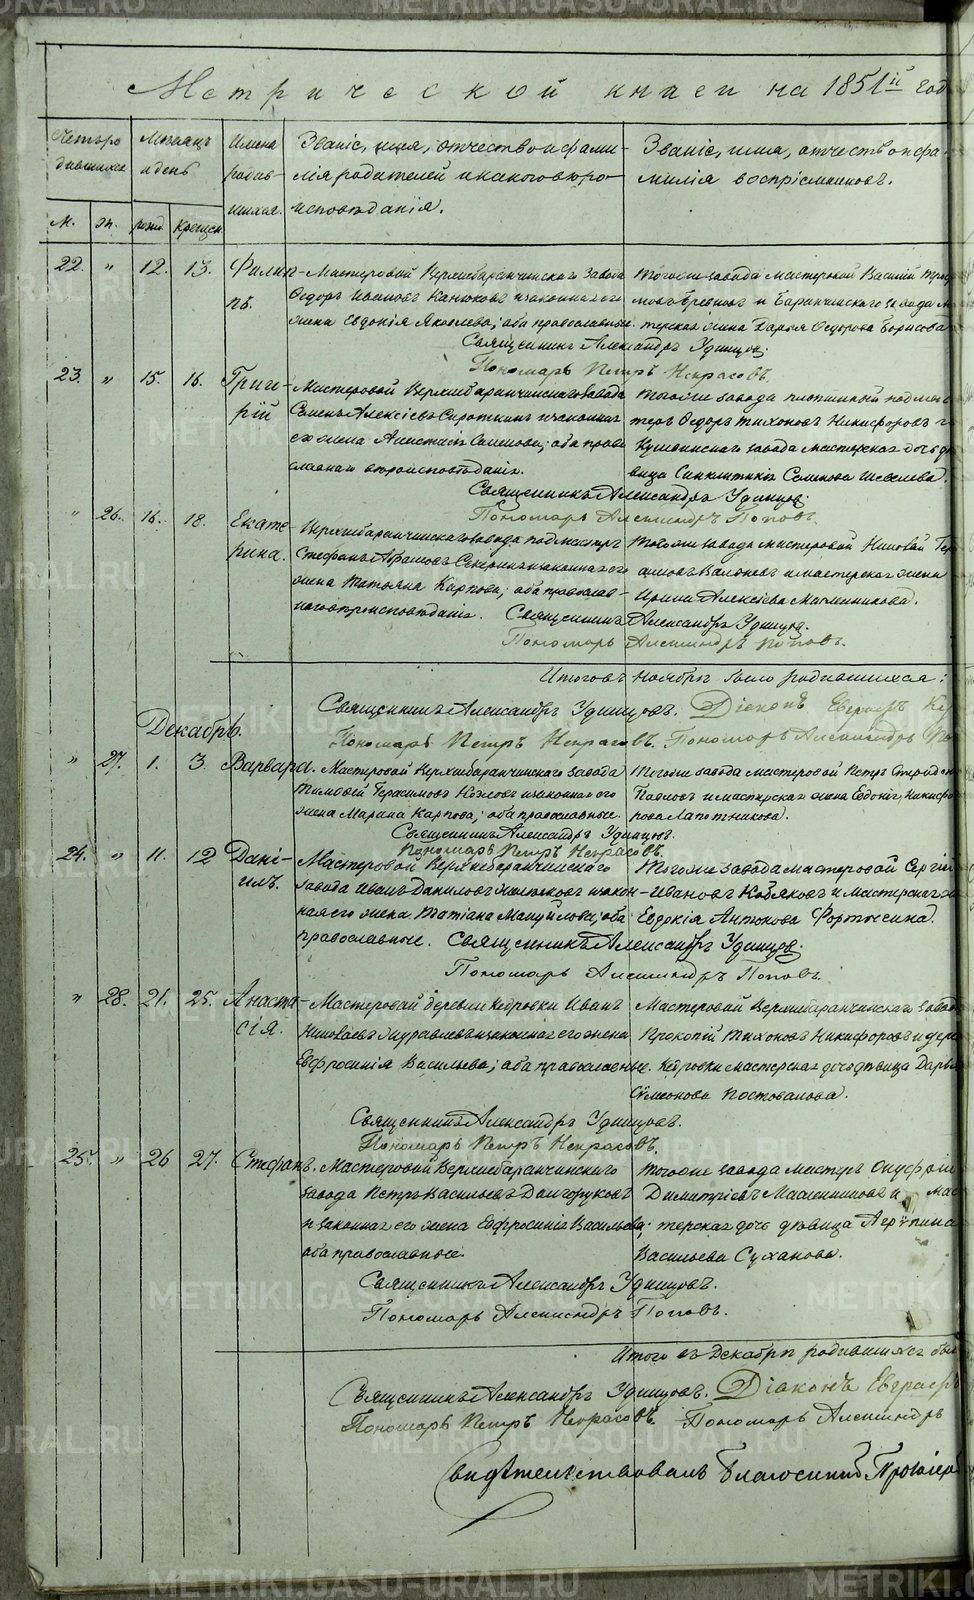 Метрической книги на 1851й год
Четъро
дившихся
Месяцъ
и день
Имена
родив-
шихся.
Званіе, имя, отчество и фами-
лія родителей и какого веро-
исповѣданія.
Званіе, имя, отчество и фа-
милія воспріемниковъ.
М. Ж. рожд. Крещен.
22. " 12. 13. Филип- Мастеровой Верхнебаранчинскаго завода
пъ. Ѳедоръ Ивановъ Канюковъ и законная его
жена Евдокія Яковлева; оба православные.
Тогоже завода мастеровой Василій
мовъ Бревновъ и Баранчинскаго завода
терская жена Дарья Ѳедорова Борисова
Священникъ Александръ Удинцовъ.
Пономарь Петръ Некрасовъ.
23. " 15. 16. Григо- Мастеровой Верхнебаранчинскаго завода
рій Семенъ Алексѣевъ Сироткинъ и законная
его жена Анастасія Семенова; оба право
славнаго вѣроисповѣданія.
Тогоже завода плотинный подмас
теръ Ѳедоръ Тихоновъ Никифоровъ
Кушвинскаго завода мастерская дочь дѣ
вица Синклитикія Семенова Шевелева.
Священникъ Александръ Удинцовъ.
Пономарь Александръ Поповъ.
" 26. 16. 18. Екате- Верхнебаранчинскаго завода подмастеръ
рина. Стефанъ и законная его
жена Татьяна Карпова; оба православ-
наго вѣроисповѣданія.
Тогоже завода мастеровой Николай
и мастерская жена
Ирина Алексѣева Масленникова.
Священникъ Александръ Удинцовъ.
Пономарь Александръ Поповъ.
Итого въ Ноябрѣ было родившихся:
Священникъ Александръ Удинцовъ. Діаконъ
Пономарь Петръ Некрасовъ. Пономарь Александръ
Декабрь.
" 27. 1. 3. Варвара. Мастеровой Верхнебаранчинскаго завода
Тимофей Герасимовъ Козловъ и законная его
жена Марина Карпова; оба православные.
Тогоже завода мастеровой Петръ
Павловъ и мастерская жена Евдокія Никифо
рова Лапотникова.
Священникъ Александръ Удинцовъ.
Пономарь Петръ Некрасовъ.
24. " 11. 12 Дані- Мастеровой Верхнебаранчинскаго
илъ. завода Иванъ Даниловъ и закон-
ная его жена Татіана Мануйлова; оба
православные.
Тогоже завода мастеровой Сергій
Ивановъ Кобяковъ и Мастерская
Евдокія Антонова
Священникъ Александръ Удинцовъ.
Пономарь Александръ Поповъ.
" 28. 21. 25. Анаста- Мастеровой деревни Кедровки Иванъ
сія. Николаевъ Журавлевъ и законная его жена
Евфросинія Васильева; оба православные.
Мастеровой Верхнебаранчинскаго завода
Прокопій Тихоновъ Никифоровъ и дере
Кедровки мастерская дочь дѣвица Дарья
Сѵмеонова Постовалова.
Священникъ Александръ Удинцовъ.
Пономарь Петръ Некрасовъ.
25. " 26 27. Стефанъ. Мастеровой Верхнебаранчинскаго
завода Петръ Васильевъ Долгоруковъ
и законная его жена Евфросинія Васильева;
оба православные.
Тогоже завода мастеръ Онуфрій
Димитріевъ Масленниковъ и мас
терская дочь дѣвица Агрипина
Васильева Суханова.
Священникъ Александръ Удинцовъ.
Пономарь Александръ Поповъ.
Итого въ Декабрѣ родившихся
Священникъ Александръ Удинцовъ. Діаконъ
Пономарь Петръ Некрасовъ. Пономарь Александръ
Свидѣтельствовалъ Благочинный
METRIKI.GASO-URAL.RU